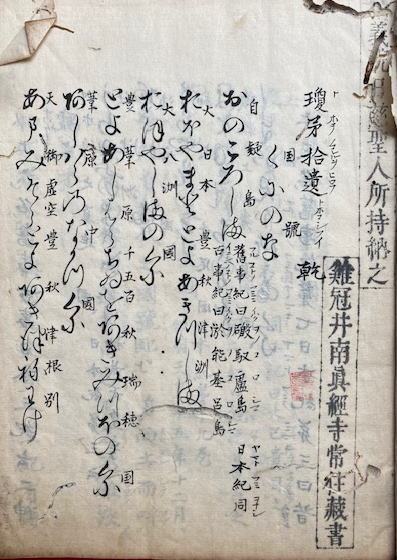 聖人所持納之
雞冠井南眞經寺常住藏書
瓊矛拾遺 乾
國號
くにのな
自凝島
おのころしま
舊事紀曰磤馭盧島 日本紀同
古事紀曰淤能基呂島
大日本豐秋津洲
おほやまととよあきつしま
大八洲國
おほやしまのくに
豐葦原千五百秋瑞穂国
とよあしはらちいをあきみつほのくに
葦原中國
あしはらのなかつくに
天御虚空豐秋津根別
あまみそらとよあきつねわけ